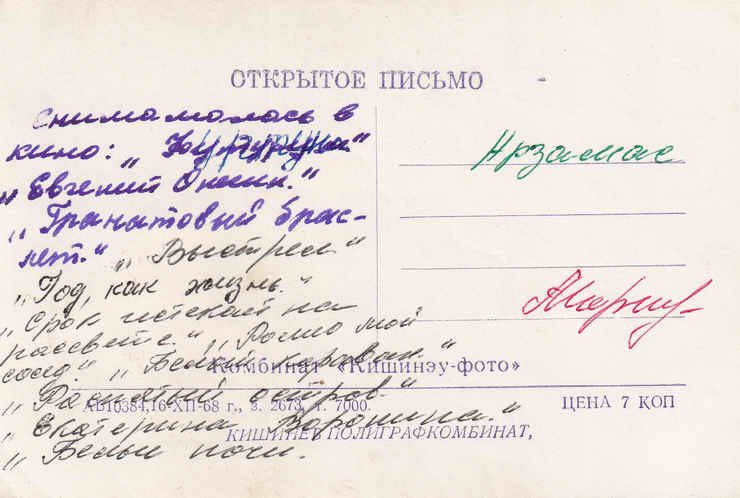 ОТКРЫТОЕ ПИСЬМО
Снимамалась в
кино: „
„Евгений Онегин."
„Гранатовый брас-
лет." „Выстрел."
„Год, как жизнь."
„Срок истекает на
рассвете." „Ролио мой
сосед" „Белый караван."
„Распятый остров."
„Екатерина Воронина."
„Белые ночи.
Арзамас
Комбинат «Кишинэу-фото»
АБ10384,16-ХП-68 г., з. 2673, т. 7000.
ЦЕНА 7 КОП
КИШИНЕВ ПОЛИГРАФКОМБИНАТ,